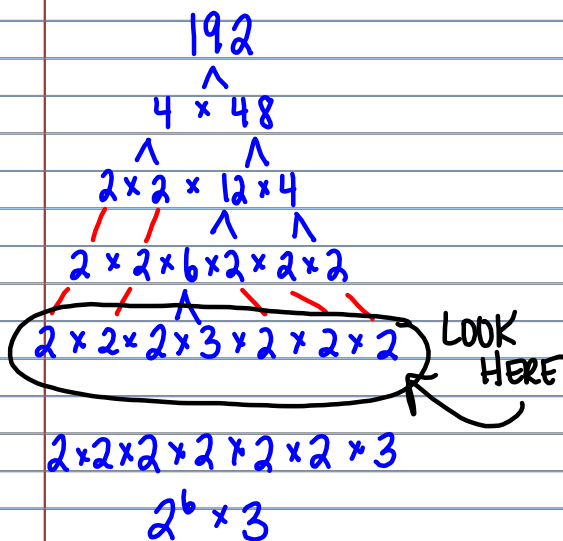 192
4 × 48
2 × 2 × 12 × 4
2 × 2 × 6 × 2 × 2 × 2
2 × 2 × 2 × 3 × 2 × 2 × 2
LOOK
HERE
2 × 2 × 2 × 2 × 2 × 2 × 3
2⁶ × 3